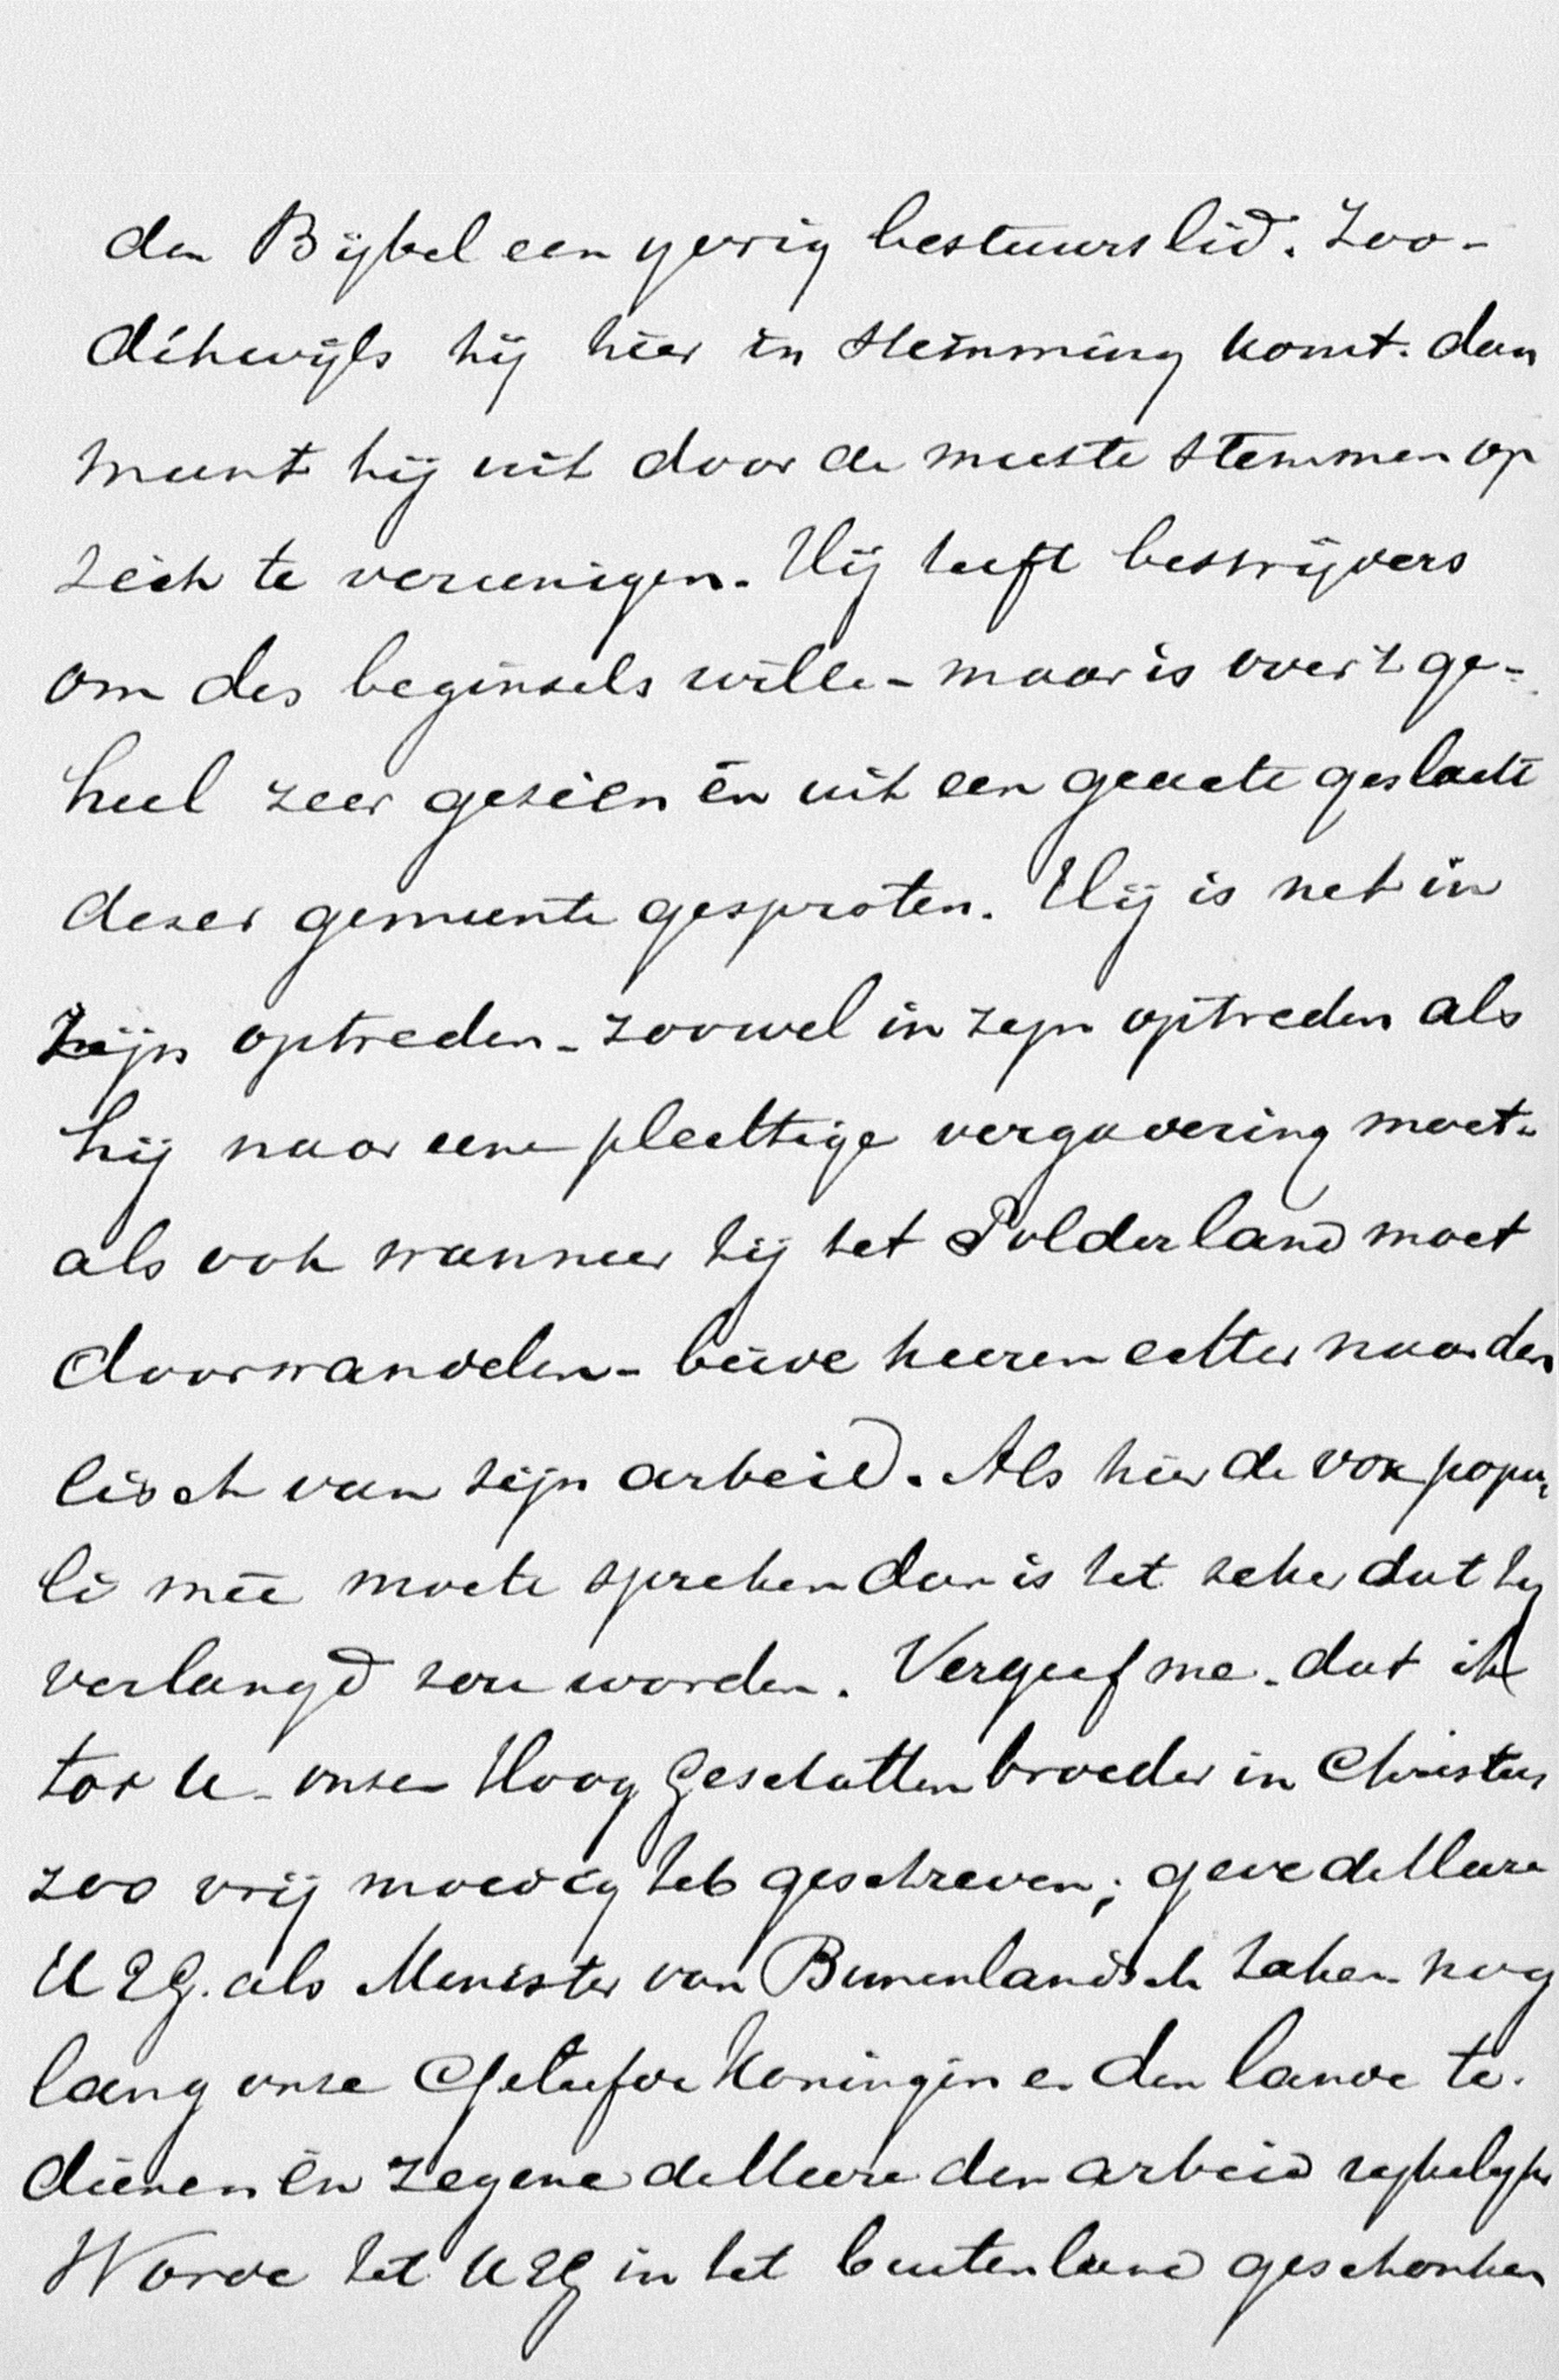 den Bijbel een yverig bestuurslid. Zoo-
dikwijls hij hier in stemming komt. dan
munt hij uit door de meeste stemmen op
zich te vereenigen. Hij heeft bestrijders
om des beginsels wille - maar is over 't ge-
heel zeer gezien én uit een geacht geslacht
dezer gemeente gesproten. Hij is net in
zijn optreden - zoowel in zijn optreden als
hij naar eene plechtige vergadering moet.
als ook wanneer hij het Polderland moet
doorwandelen - beide keeren echter naar den
eisch van zijn arbeid. Als hier de vox popu-
li meê moete spreken dan is het zeker dat hy
verlangd zou worden. Vergeef me. dat ik
tot U - onzen Hoog Geschatten broeder in Christus
zoo vrij moedig heb geschreven; geve de Heere
U EG. als Minister van Binnenlandsch Zaken nog
lang onze Geliefde Koningin en den lande te.
dienen én zegene de Heere den arbeid rykelyk
Worde het U EG in het buitenland geschonken